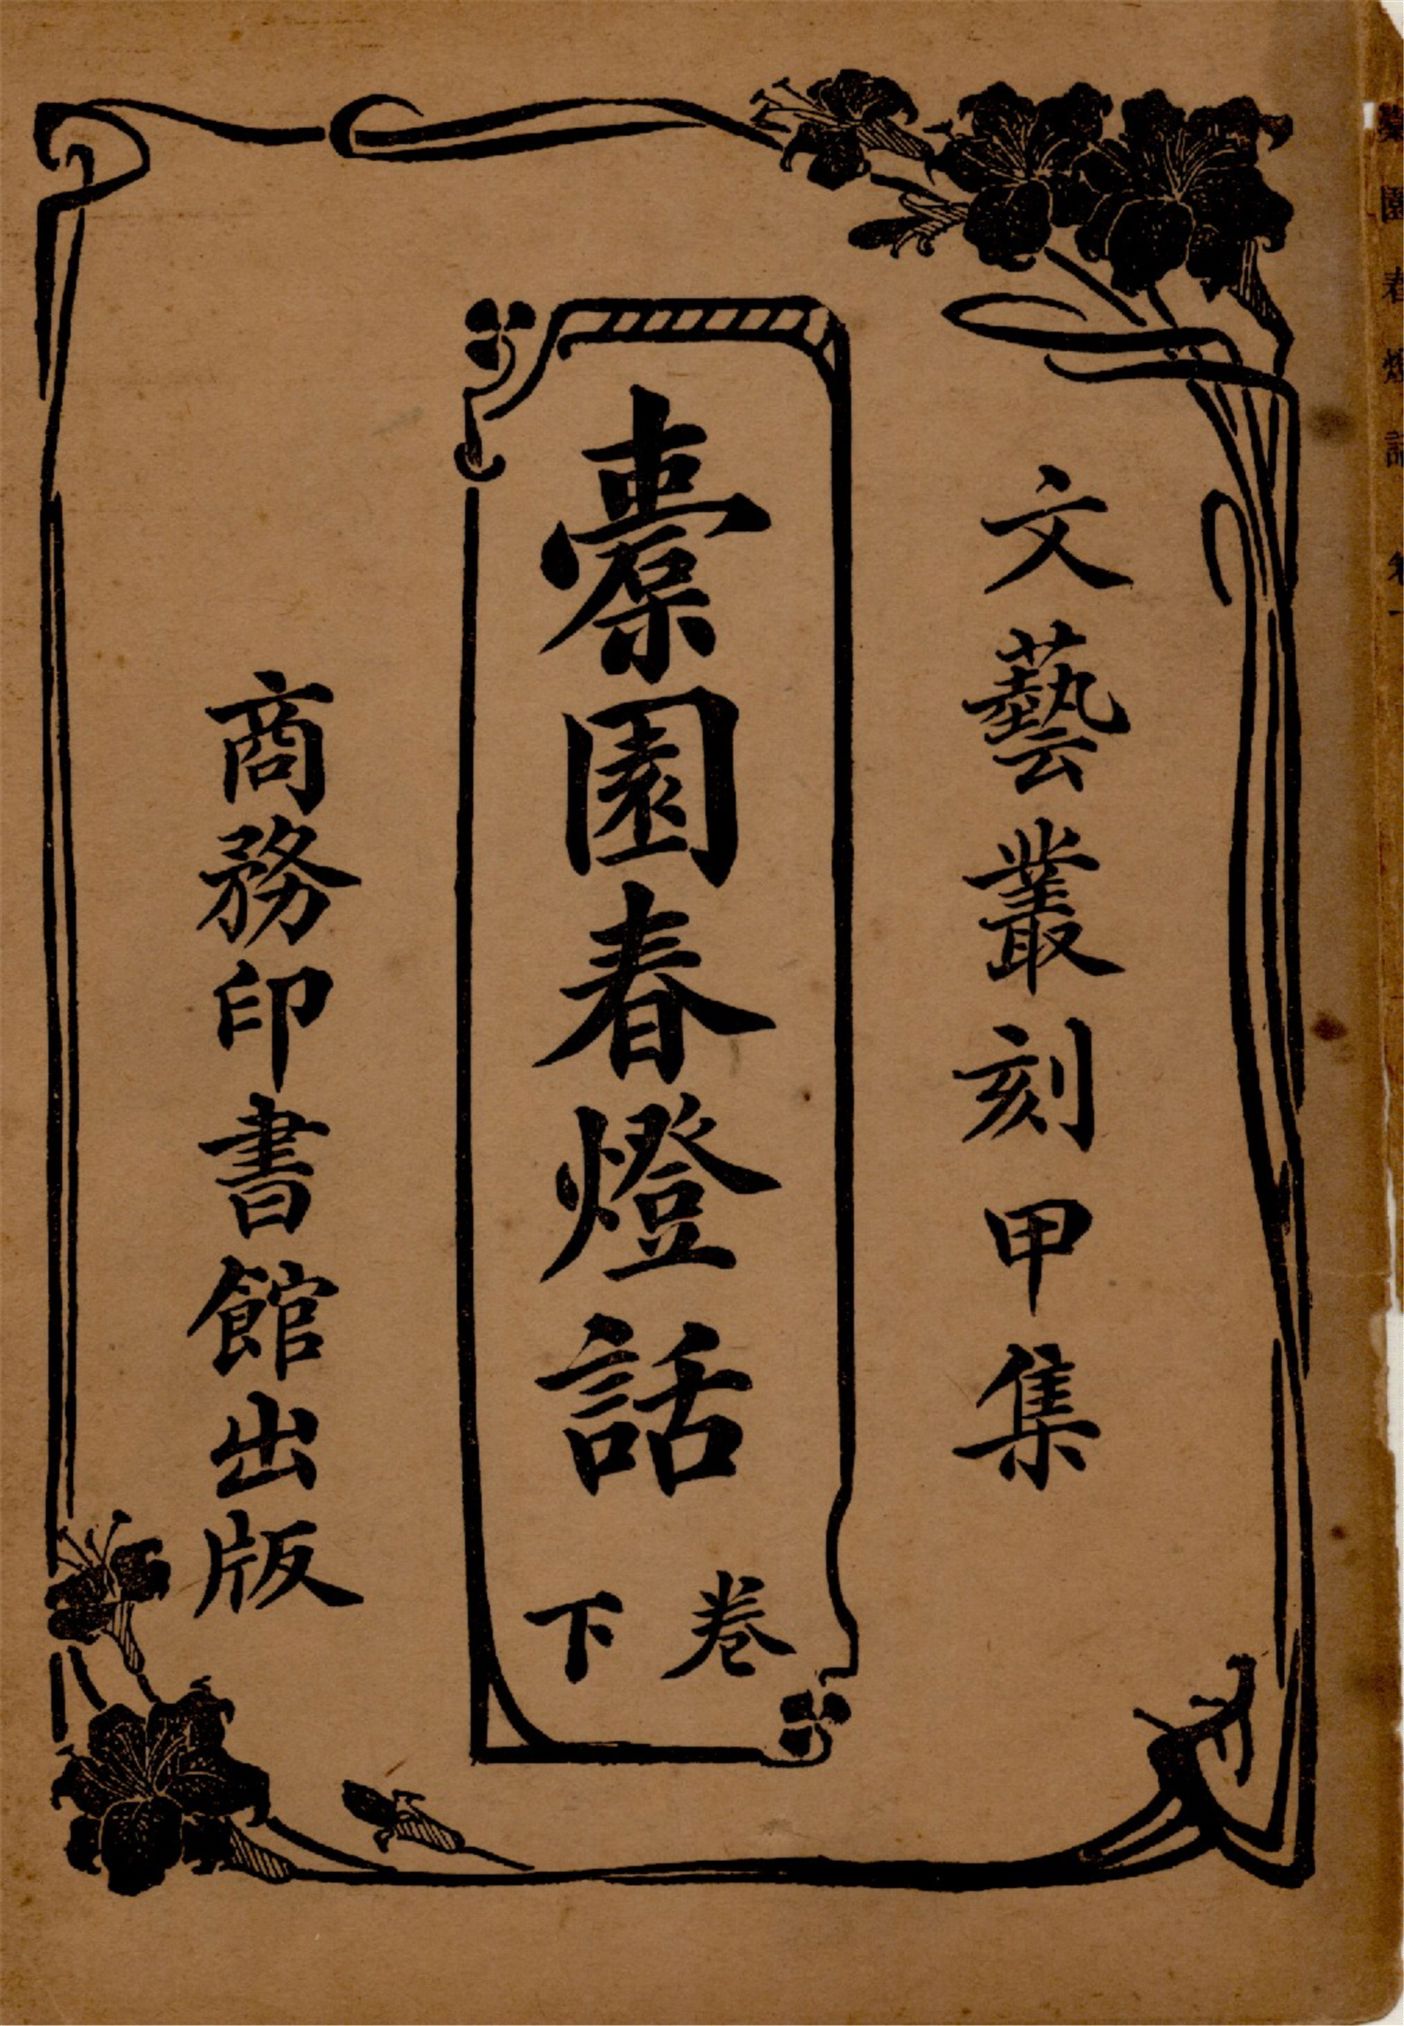 橐園春燈話 卷
文藝叢刻甲集
橐園春燈話
卷下
商務印書館出版